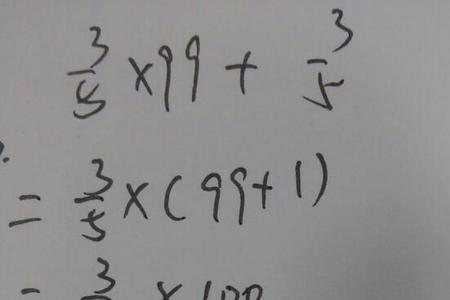 3/5 ×99 + 3/5
= 3/5 ×(99+1)
= 3/5 ×100